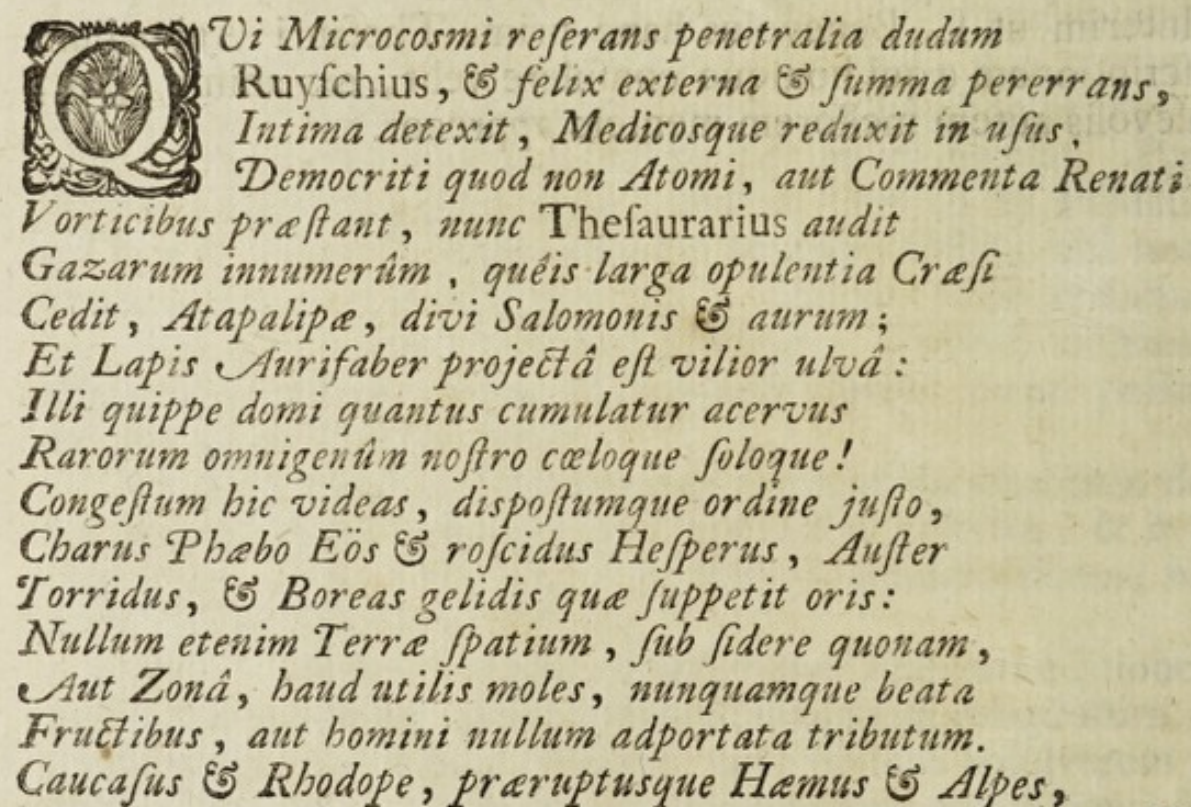 QVi Microcosmi reſerans penetralia dudum
Ruyſchius, & felix externa & ſumma pererrans,
Intima detexit, Medicosque reduxit in uſus,
Democriti quod non Atomi, aut Commenta Renati
Vorticibus præſtant, nunc Theſaurarius audit
Gazarum innumerûm, quêis larga opulentia Cræſi
Cedit, Atapalipæ, divi Salomonis & aurum;
Et Lapis Aurifaber projectâ eſt vilior ulvâ:
Illi quippe domi quantus cumulatur acervus
Rarorum omnigenûm noſtro cœloque ſoloque!
Congeſtum hic videas, dispoſtumque ordine juſto,
Charus Phæbo Eös & roſcidus Heſperus, Auſter
Torridus, & Boreas gelidis quæ ſuppetit oris:
Nullum etenim Terræ ſpatium, ſub ſidere quonam,
Aut Zonâ, haud utilis moles, nunquamque beata
Fructibus, aut homini nullum adportata tributum.
Caucaſus & Rhodope, præruptusque Hæmus & Alpes,